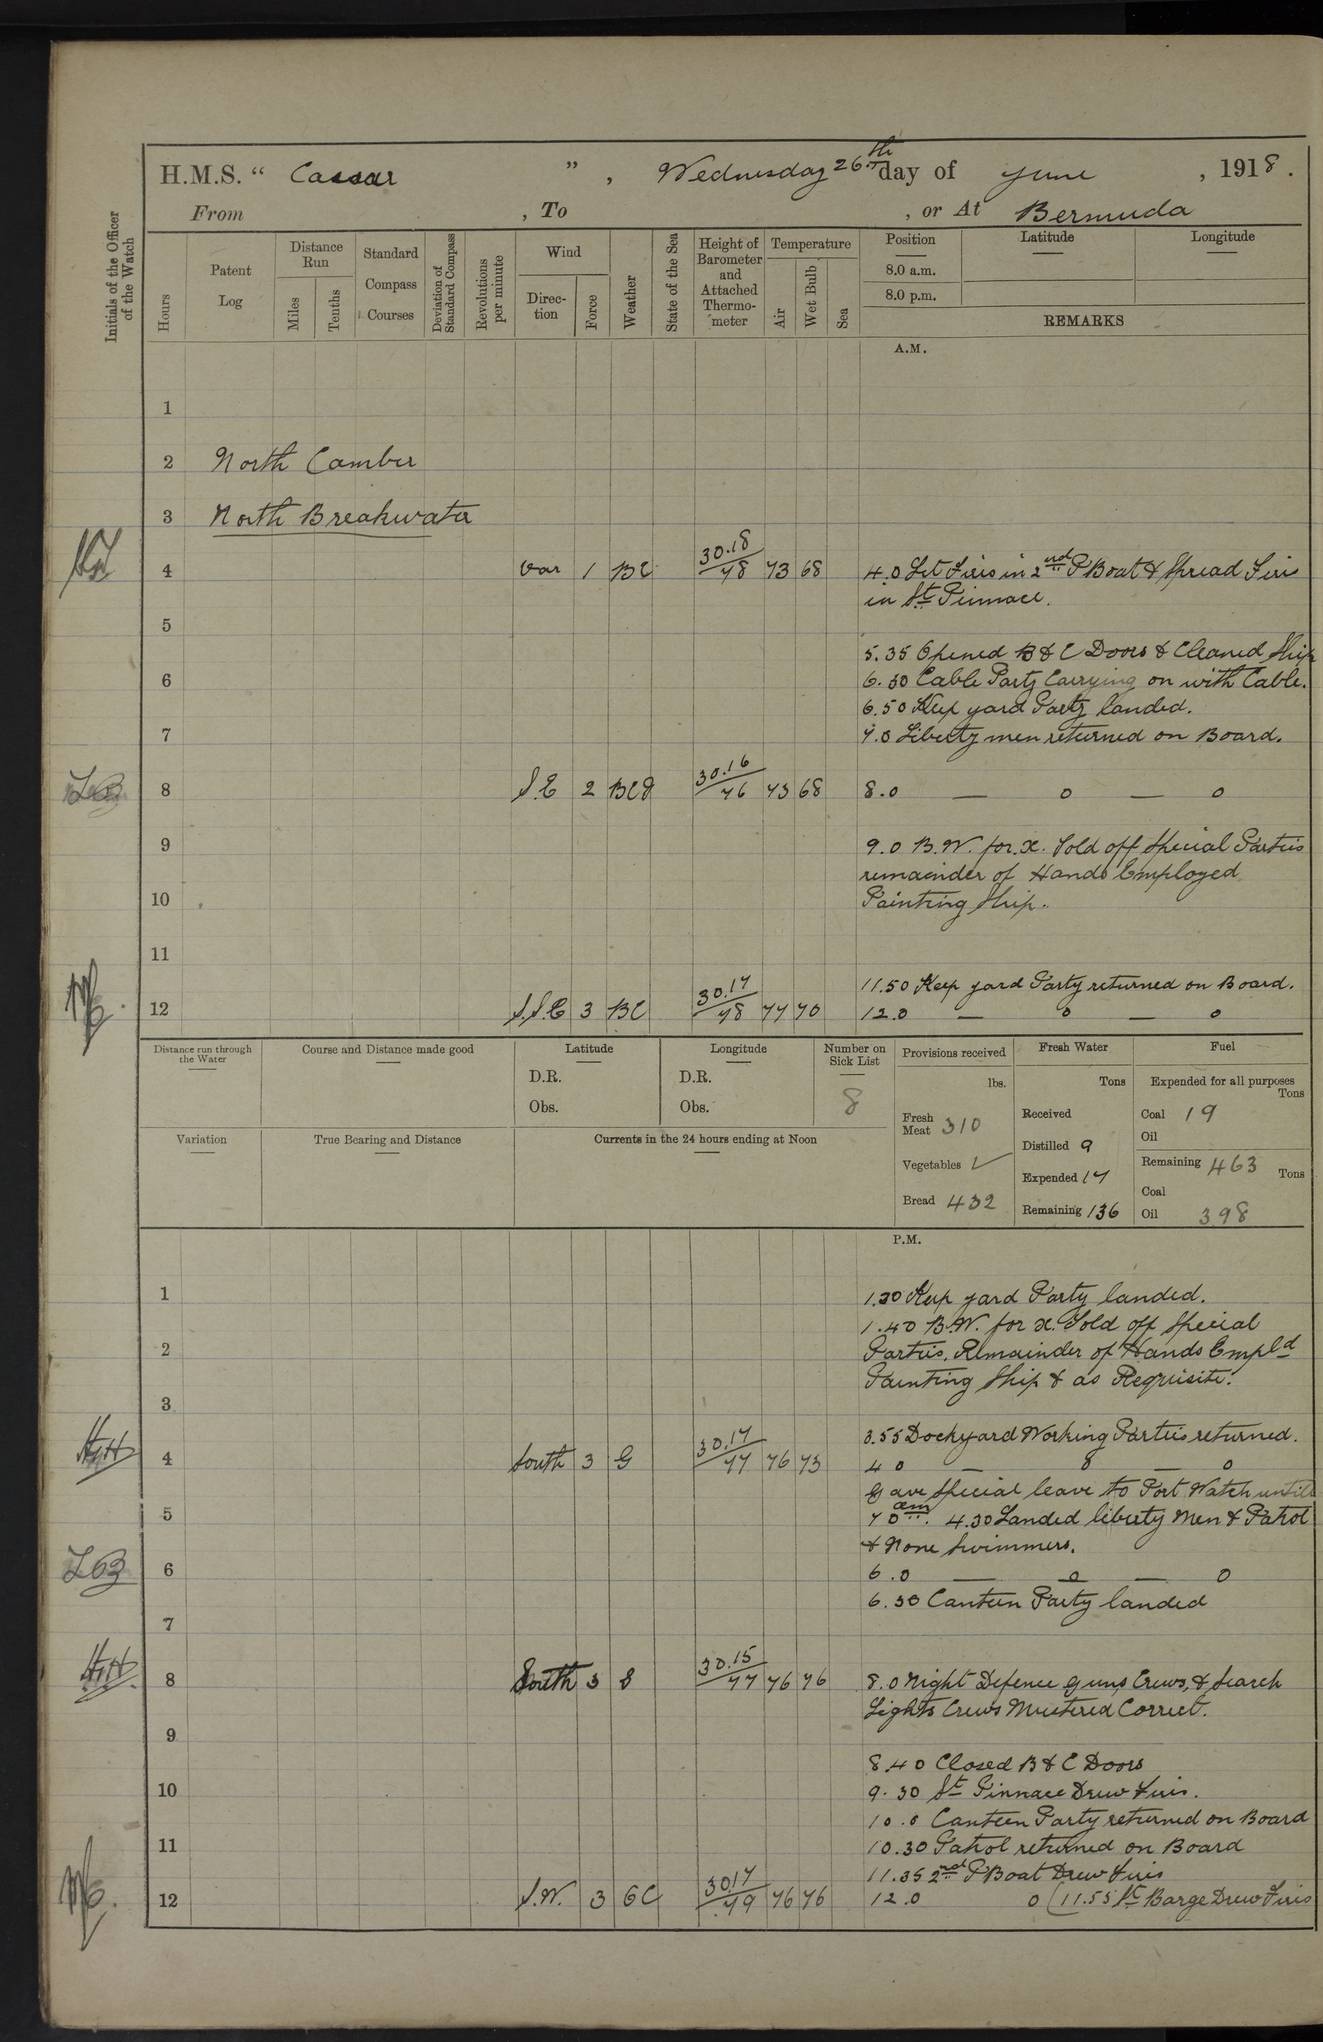 H.M.S. “ Caesar ” , Wednesday 26th day of June , 1918 .
From , To , or At Bermuda
Initials of the Officer of the Watch
Hours
Patent Log
Distance Run
Miles
Tenths
Standard Compass Courses
Deviation of Standard Compass
Revolutions per minute
Wind
Direction
Force
Weather
State of the Sea
Height of Barometer and Attached Thermometer
Temperature
Air
Wet Bulb
Sea
Position
8.0 a.m.
8.0 p.m.
Latitude
Longitude
REMARKS
A.M.
1
2 North Camber
3 North Breakwater
4 Var 1 BC 30.18 78 73 68 4.0 Lit Fires in 2nd P Boat & Spread Fires
in St Pinnace.
5
5.35 Opened B & C Doors & Cleaned Ship
6 6.30 Cable Party Carrying on with Cable.
6.50 Keep yard Party landed.
7 7.0 Liberty men returned on Board.
8 S.E 2 BCD 30.16 76 73 68 8.0 — 0 — 0
9 9.0 B.W. for x. Told off Special Parties
remainder of Hands Employed
10 Painting Ship.
11
11.50 Keep yard Party returned on Board.
12 S.S.E 3 BC 30.17 78 77 70 12.0 — 0 — 0
Distance run through the Water
Course and Distance made good
Latitude
D.R.
Obs.
Longitude
D.R.
Obs.
Number on Sick List
8
Provisions received
lbs.
Fresh Meat 310
Vegetables ✓
Bread 432
Fresh Water
Tons
Received
Distilled 9
Expended 17
Remaining 136
Fuel
Expended for all purposes
Tons
Coal 19
Oil
Remaining 463 Tons
Coal
Oil 398
Variation
True Bearing and Distance
Currents in the 24 hours ending at Noon
P.M.
1 1.30 Keep yard Party landed.
1.40 B.W. for x. Told off Special
2 Parties, Remainder of Hands Empld
Painting Ship & as Requisite.
3
3.55 Dockyard Working Parties returned.
4 South 3 G 30.17 77 76 73 4 0 — 0 — 0
Gave Special leave to Port Watch untill
5 7 0 am. 4.30 Landed liberty Men & Patrol
& None Swimmers.
6 6.0 — 0 — 0
6.30 Canteen Party landed
7
8 South 3 S 30.15 77 76 76 8.0 Night Defence Guns Crews, & Search
Lights Crews Mustered Correct.
9
8.40 Closed B & C Doors
10 9.30 St Pinnace Drew Fires.
10.0 Canteen Party returned on Board
11 10.30 Patrol returned on Board
11.35 2nd P Boat Drew Fires
12 S.W. 3 GC 30.17 79 76 76 12.0 0 (11.55 St Barge Drew Fires